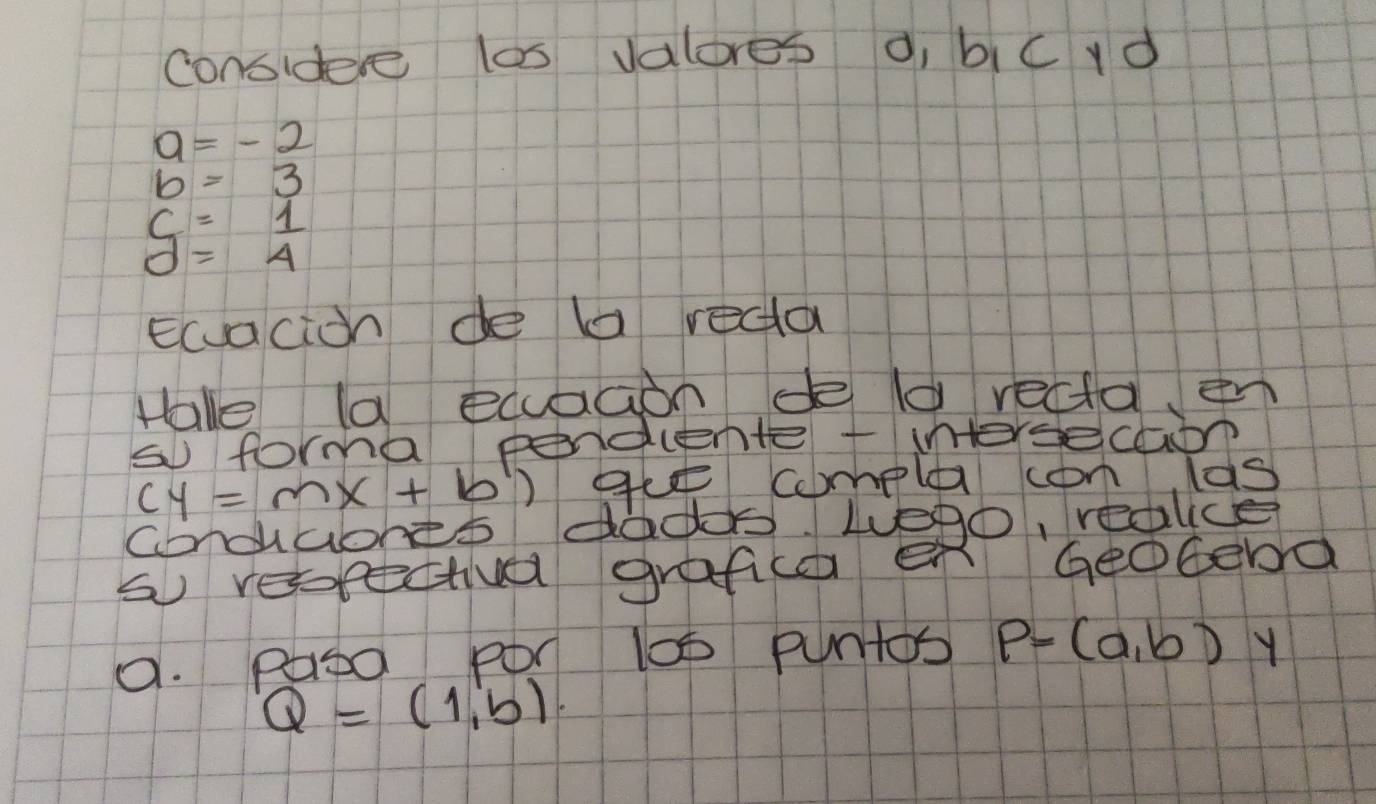 Considere los valores a, b, c y d
a = - 2
b = 3
c = 1
d = 4
Ecuación de la recta
Halle la ecuación de la recta, en
su forma pendiente - intersección
(y = mx + b) que cumpla con las
condiciones dadas. Luego, realice
su respectiva grafica en GeoGebra
a. Pasa por los puntos P = (a, b) y
Q = (1, b).